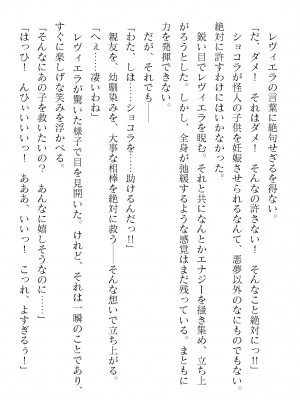 レヴィエラの言葉に絶句せざるを得ない。
「だ、ダメ！　それはダメ！　そんなの許さない！　そんなこと絶対にっ!!」
ショコラが怪人の子供を妊娠させられるなんて、悪夢以外のなにものでもない。
絶対に許すわけにはいかなかった。
鋭い目でレヴィエラを睨む。それと共になんとかエナジーを掻き集め、立ち上
がろうとした。しかし、全身が弛緩するような感覚はまだ残っている。まともに
力を発揮できない。
だが、それでも――
「わた、しは……ショコラを……助けるんだっ!!」
親友を、幼馴染みを、大事な相棒を絶対に救う――そんな想いで立ち上がる。
「へぇ……凄いわね」
レヴィエラが驚いた様子で目を見開いた。けれど、それは一瞬のことであり、
すぐに楽しげな笑みを浮かべる。
「そんなにあの子を救いたいの？　あんなに嬉しそうなのに……」
「はっひ！　んひぃいいいっ！　あああ、いいっ！　こっれ、よすぎるぅ！」